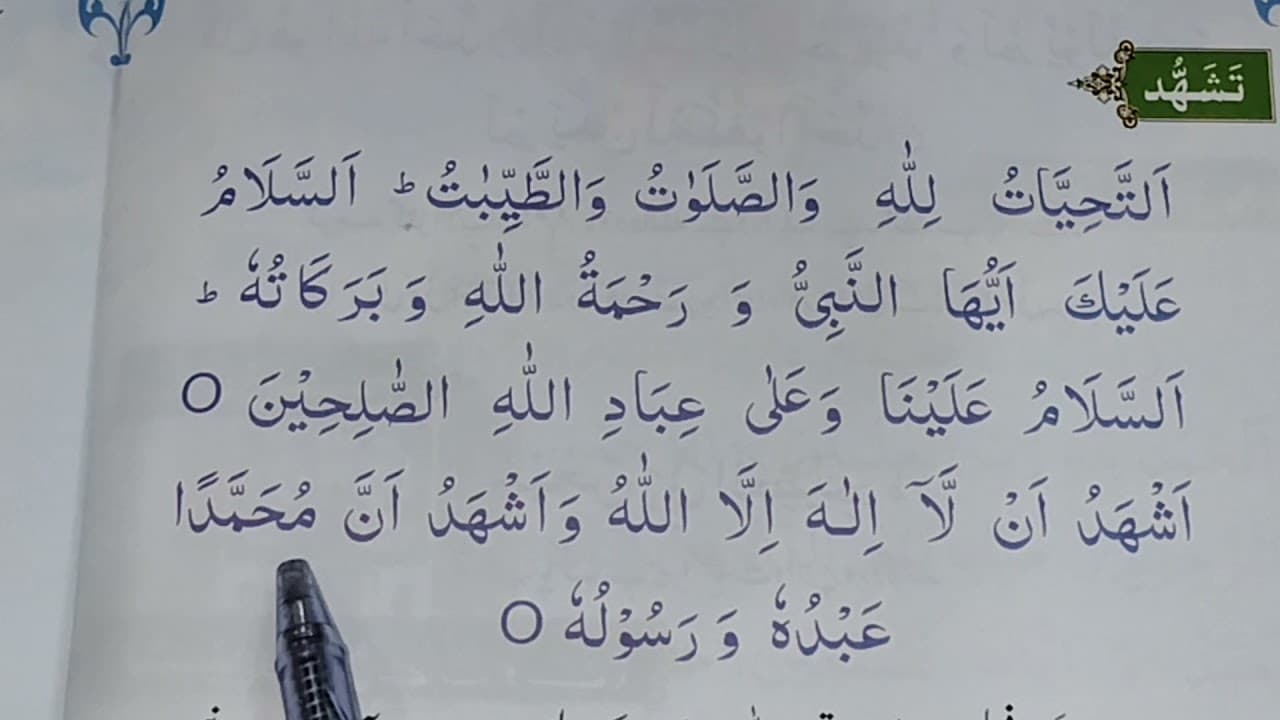 تَشَهُّد
اَلتَّحِيَّاتُ لِلّٰهِ وَالصَّلَوٰتُ وَالطَّيِّبٰتُ ؕ اَلسَّلَامُ
عَلَيْكَ اَيُّهَا النَّبِیُّ وَ رَحْمَةُ اللّٰهِ وَ بَرَكَاتُهٗ ؕ
اَلسَّلَامُ عَلَيْنَا وَعَلٰى عِبَادِ اللّٰهِ الصّٰلِحِيْنَ O
اَشْهَدُ اَنْ لَّآ اِلٰهَ اِلَّا اللّٰهُ وَاَشْهَدُ اَنَّ مُحَمَّدًا
عَبْدُهٗ وَ رَسُوْلُهٗ O